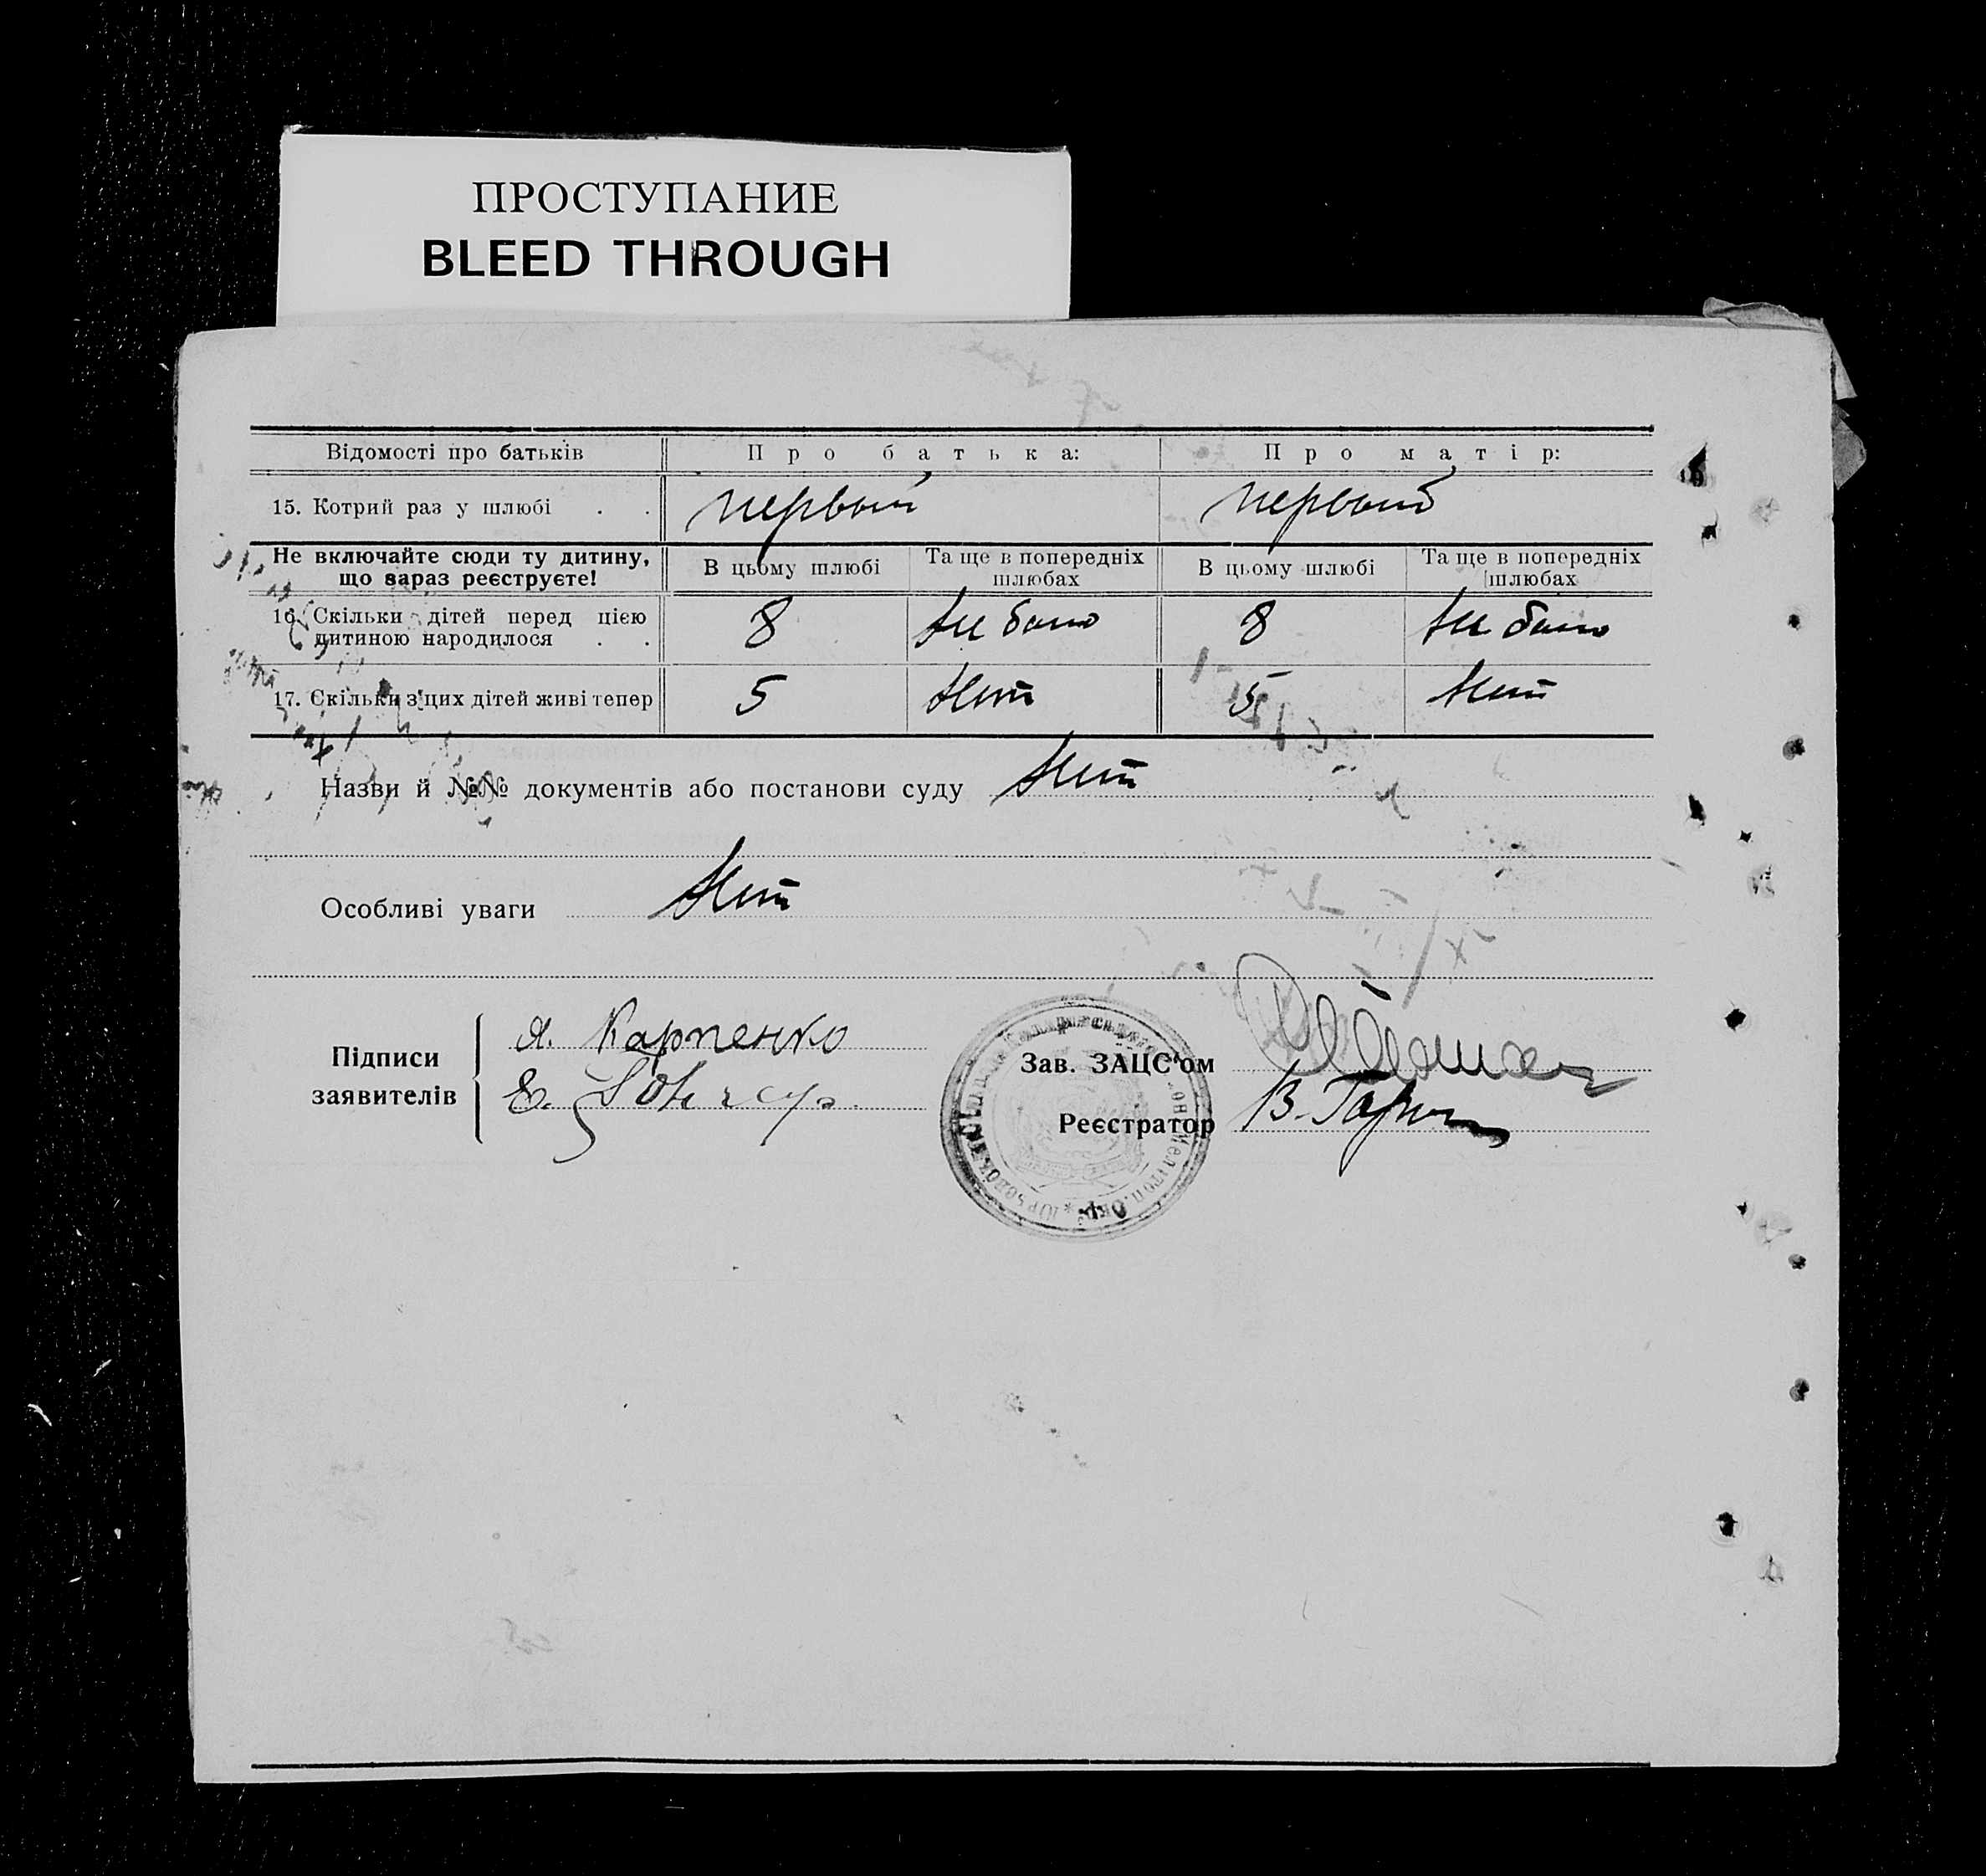 ПРОСТУПАНИЕ
BLEED THROUGH
Відомості про батьків Про батька: Про матір:
15. Котрий раз у шлюбі . . первый первый
Не включайте сюди ту дитину, що зараз реєструєте! В цьому шлюбі Та ще в попередніх шлюбах В цьому шлюбі Та ще в попередніх шлюбах
16. Скільки дітей перед цією дитиною народилося . . 8 не было 8 не было
17. Скільки з цих дітей живі тепер 5 Нет 5 Нет
Назви й №№ документів або постанови суду Нет
Особливі уваги Нет
Підписи заявителів
Я. Карпенко
Е.
Зав. ЗАЦС'ом
Реєстратор В.